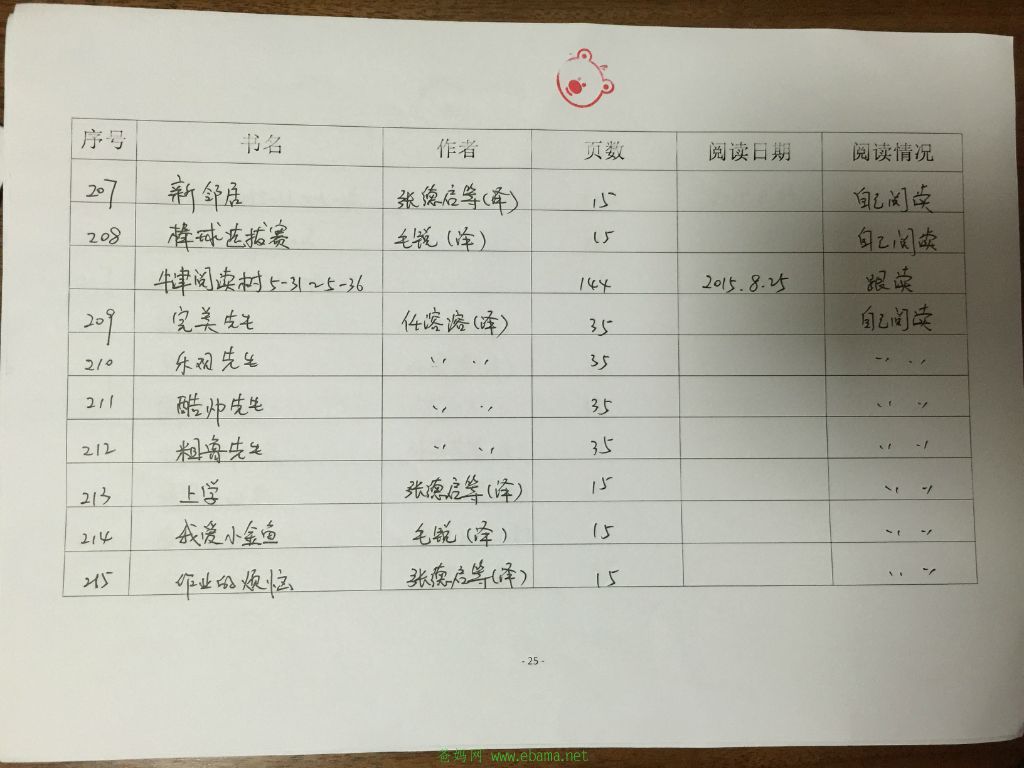 序号 书名 作者 页数 阅读日期 阅读情况
207 新邻居 张德启等(译) 15 自己阅读
208 棒球选拔赛 毛锐(译) 15 自己阅读
牛津阅读树5-31~5-36 144 2015.8.25 跟读
209 完美先生 任溶溶(译) 35 自己阅读
210 乐观先生 〃 〃 35 〃 〃
211 酷帅先生 〃 〃 35 〃 〃
212 粗鲁先生 〃 〃 35 〃 〃
213 上学 张德启等(译) 15 〃 〃
214 我爱小金鱼 毛锐(译) 15 〃 〃
215 作业的烦恼 张德启等(译) 15 〃 〃
- 25 -
爸妈网 www.ebama.net